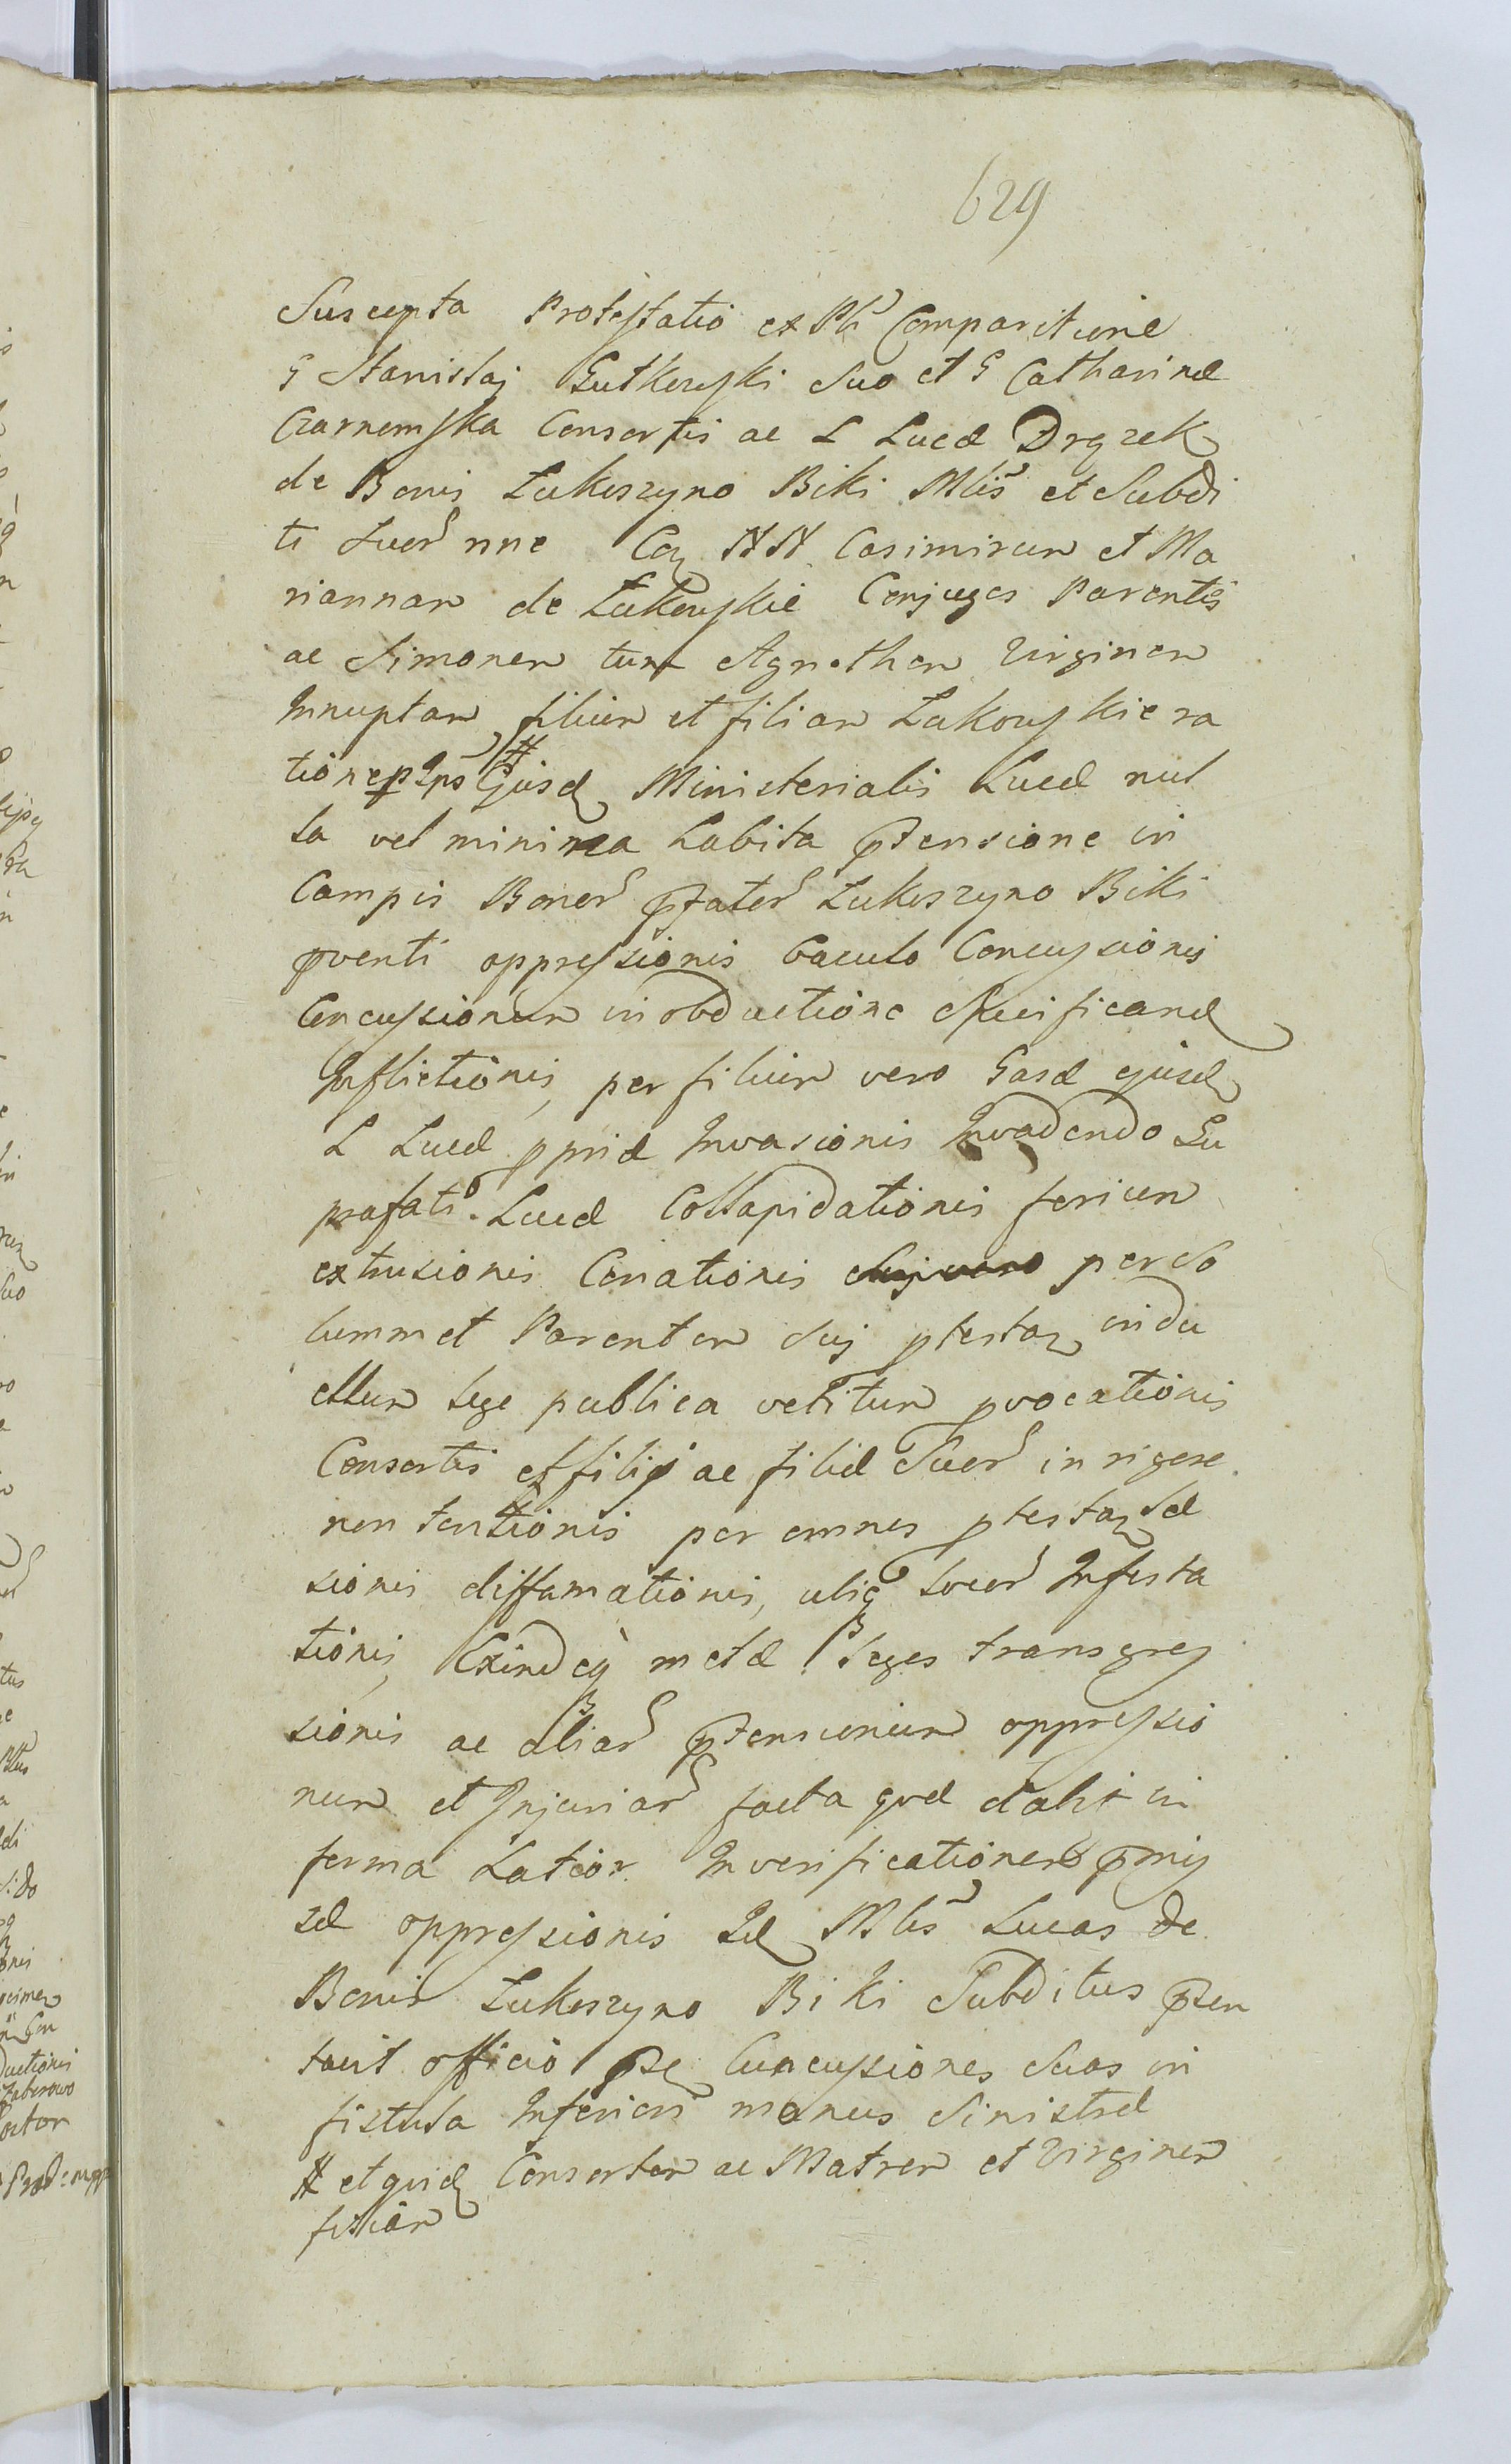 629
Suscepta Protestatio ex Pli Comparitione
G Stanislaj Gutkowski Suo et G Catharinæ
Czarnemska Consortis ac L Lucæ Drązek
de Bonis Lukoszyno Biki Mlis et Subdi
ti Suor nne Coq NN Casimirum et Ma
riannam de Lukowskie Conjuges Parentes
ac Simonem tum Agnethem Virginem
Innuptam filium et filiam Lukowskie ra
tione p Ips # Ejusd Ministerialis Lucæ nul
la vel minima habita ptensione in
Campis Bonor pfator Lukoszyno Biki
pventi oppressionis baculo Concussionis
Concussionum in obductione Specificand
Inflictionis, per filium vero Eosd ejusd
L Lucæ pprid Invasionis Invadendo Eu
prafati Lucæ Collapidationis ferium
extrusionis Conationis per So
lummet Parentem Suj ptestaz in du
ellum lege publica vetitum pvocationis
Consortis et filij ac filiæ Suor in rigore
non tentionis per omnes ptestaz Læ
sionis diffamationis, ubiq locor Infesta
tionis, Exindeq metæ Leges transgres
sionis ac aliar ptensionum oppressio
num et Injuriar facta qvæ dabit in
forma Latior Inverificationem pmis
sæ oppressionis Id Mlis Lucas de
Bonis Lukoszyno Biki Subditus psen
tavit officio pse Concussiones Suas in
fistula Inferiori manus Sinistræ
# et qvid Consortem ac Matrem et Virginem
filiam